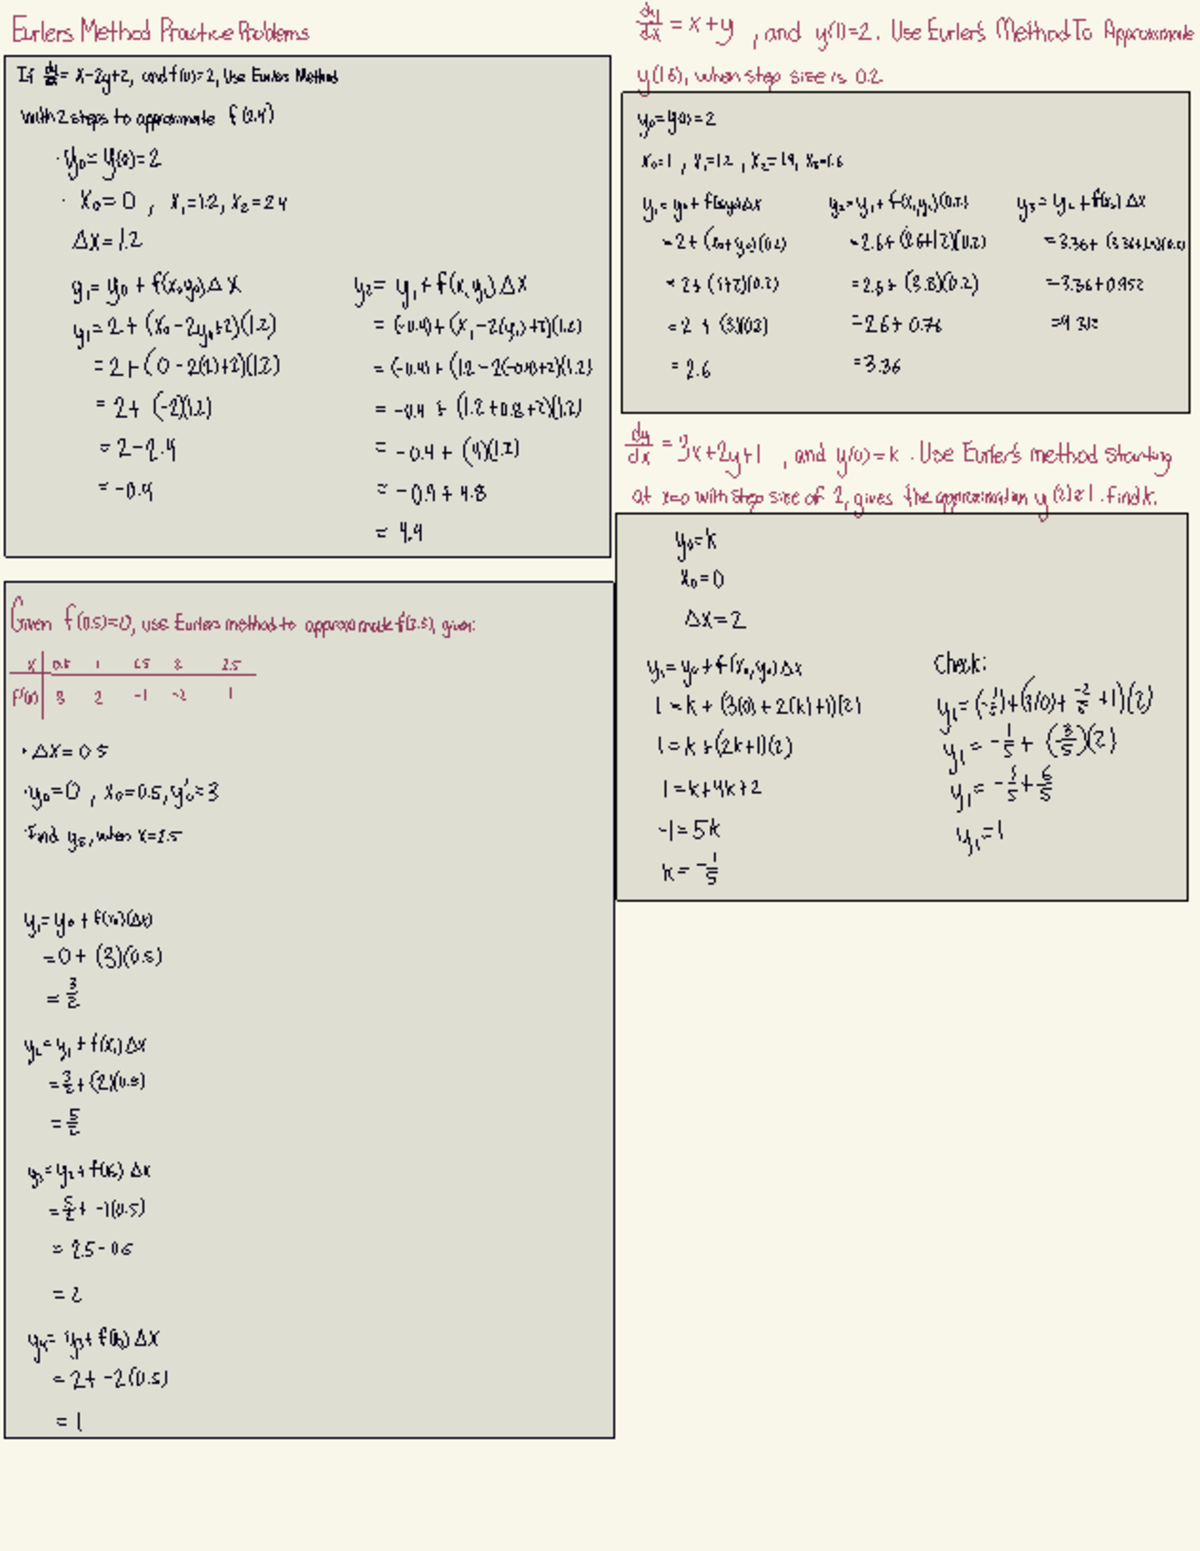 Eurlers Method Practice Problems
If dy/dx = x-2y+2, and f(0)=2, Use Eurlers Method
with 2 steps to approximate f(2.4)
· y₀= y(0)=2
· x₀=0 , x₁=1.2, x₂=2.4
Δx=1.2
y₁= y₀ + f(x₀,y₀)Δx
y₁=2+(x₀-2y₀+2)(1.2)
=2+(0-2(2)+2)(1.2)
=2+ (-2)(1.2)
=2-2.4
=-0.4
y₂= y₁+f(x₁,y₁)Δx
= (-0.4)+(x₁-2(y₁)+2)(1.2)
= (-0.4)+(1.2-2(-0.4)+2)(1.2)
= -0.4 + (1.2+0.8+2)(1.2)
= -0.4 + (4)(1.2)
= -0.4+4.8
= 4.4
Given f(0.5)=0, use Eurlers method to approximate f(2.5), given:
x 0.5 1 1.5 2 2.5
f'(x) 3 2 -1 -2 1
· Δx=0.5
· y₀=0 , x₀=0.5, y'₀=3
· Find y₅, when x=2.5
y₁=y₀+f(x₀)(Δx)
=0+(3)(0.5)
=3/2
y₂=y₁+f(x₁)Δx
=3/2+(2)(0.5)
=5/2
=5/2+ -1(0.5)
=2.5-0.5
=2
=2+ -2(0.5)
=1
dy/dx = x+y , and y(1)=2. Use Eurler's Method To Approximate
y(1.6), when step size is 0.2
y₀=y(0)=2
x₀=1 , x₁=1.2 , x₂=1.4, x₃=1.6
y₁=y₀+f(x₀y₀)Δx
=2+(x₀+y₀)(0.2)
=2+(1+2)(0.2)
=2 + (3)(0.2)
=2.6
y₂=y₁+f(x₁,y₁)(0.2)
=2.6+(2.6+1.2)(0.2)
=2.6+(3.8)(0.2)
=2.6+0.76
=3.36
y₃=y₂+f(x₂)Δx
=3.36+(3.36+1.4)(0.2)
=3.36+0.952
=4.312
dy/dx =3x+2y+1 , and y(0)=k . Use Eurler's method starting
at x=0 with step size of 2, gives the approximation y(2)≈1. find k.
y₀=k
x₀=0
Δx=2
y₁=y₀+f(x₀,y₀)Δx
1=k+(3(0)+2(k)+1)(2)
1=k+(2k+1)(2)
1=k+4k+2
-1=5k
k=-1/5
Check:
y₁=(-1/5)+(3(0)+ -2/5 +1)(2)
y₁=-1/5+(3/5)(2)
y₁=-1/5+6/5
y₁=1